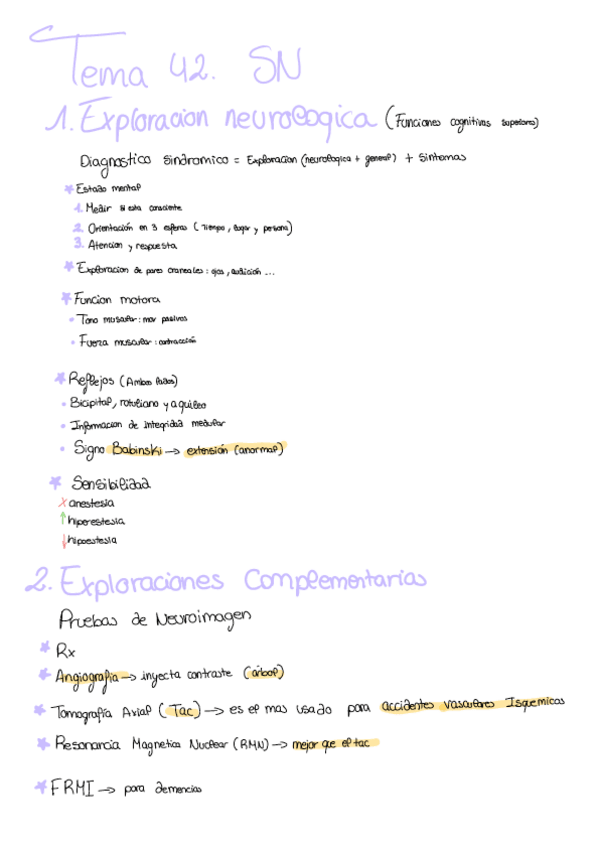 Tema 42. SN
1. Exploracion neurologica (Funciones cognitivas superiores)
Diagnostico Sindromico = Exploracion (neurologica + general) + Sintomas
* Estado mental
1. Medir si esta consciente
2. Orientación en 3 esferas (Tiempo, lugar y persona)
3. Atencion y respuesta
* Exploracion de pares craneales: ojos, audición ...
* Funcion motora
• Tono muscular: mov pasivos
• Fuerza muscular: contracción
* Reflejos (Ambos lados)
• Bicipital, rotuliano y aquileo
• Informacion de Integridad medular
• Signo Babinski → extensión (anormal)
* Sensibilidad
x anestesia
↑ hiperestesia
↓ hipoestesia
2. Exploraciones Complementarias
Pruebas de Neuroimagen
* Rx
* Angiografia → inyecta contraste (árbol)
* Tomografía Axial (Tac) → es el mas usado para accidentes vasculares Isquemicos
* Resonancia Magnetica Nuclear (RMN) → mejor que el tac
* FRMI → para demencias